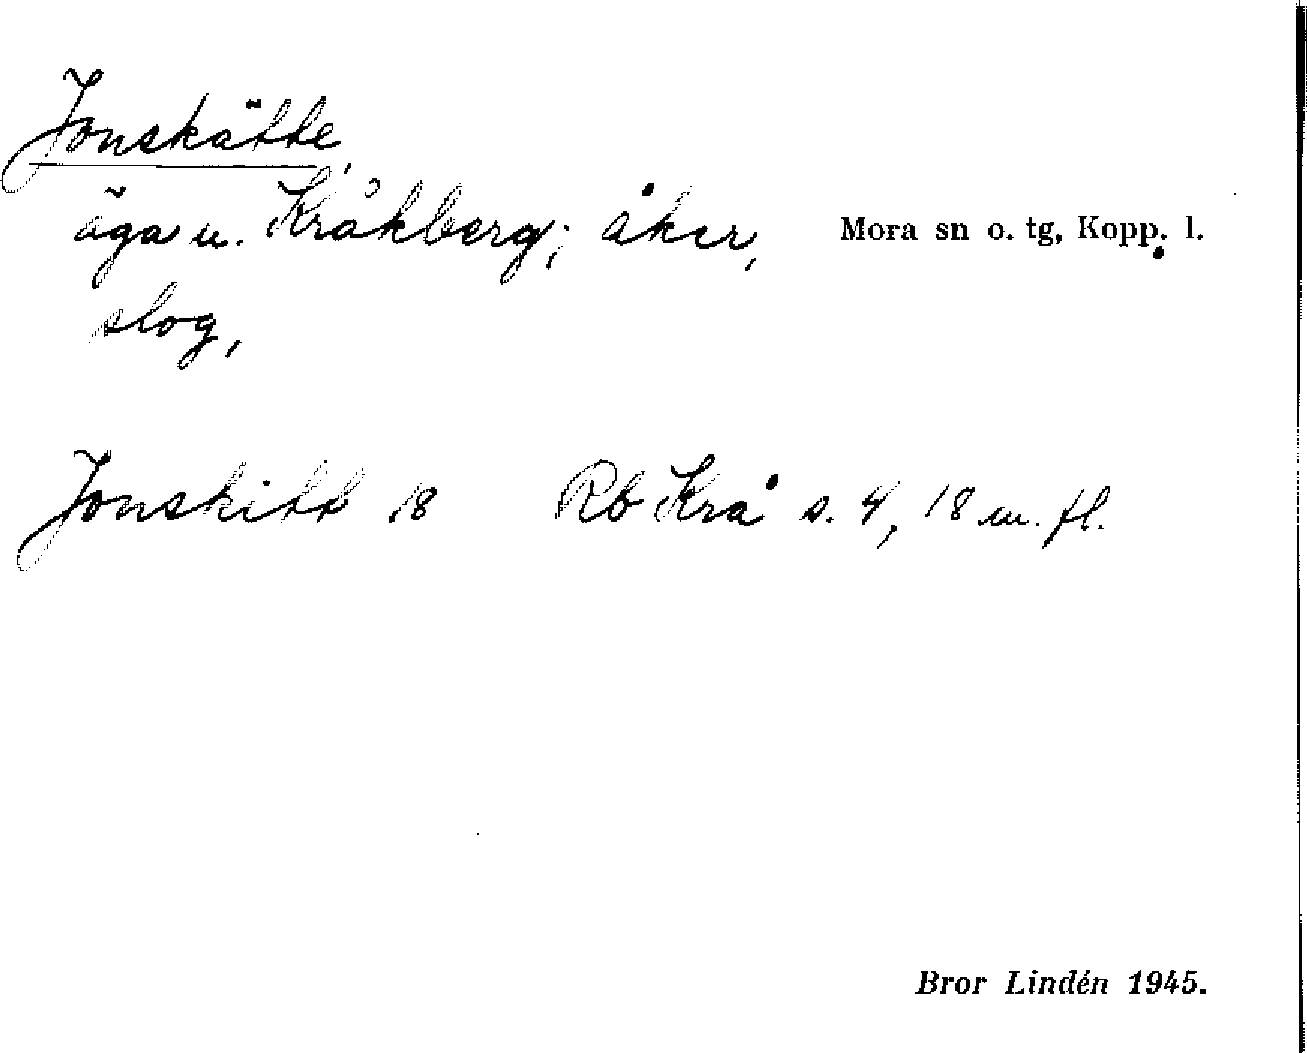 Jonskätte,
äga u. Kråkberg; åker,
Mora sn o. tg, Kopp. l.
slog,
Jonskitt 18 Rb Krå s. 4, 18 m. fl.
Bror Lindén 1945.